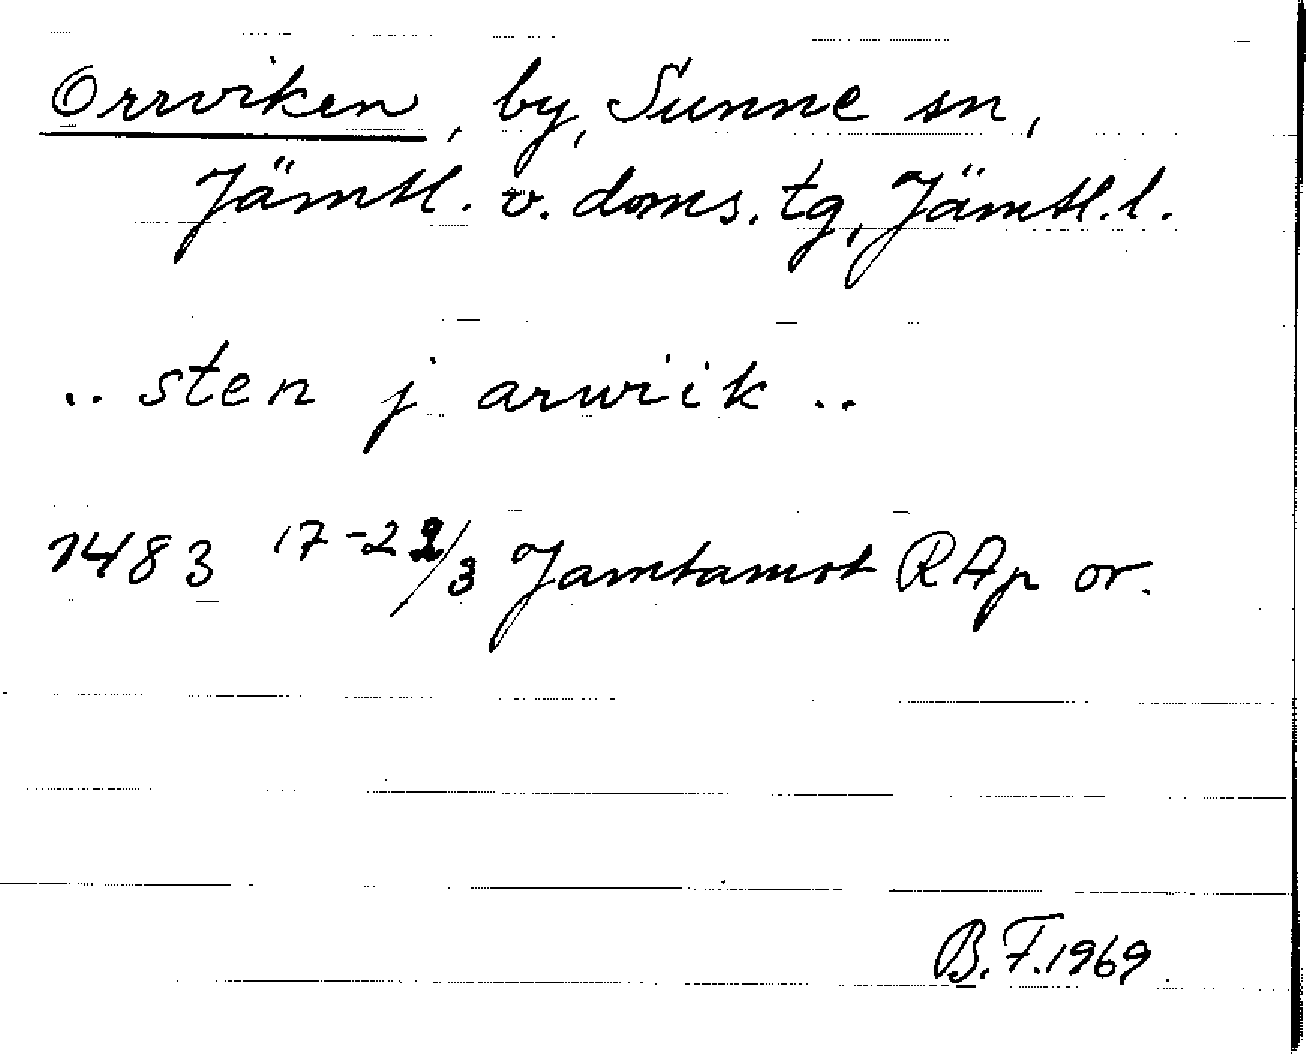 Orrviken, by, Sunne sn,
Jämtl. v. doms. tg, Jämtl. l.
.. sten j arwiik ..
1483 17-22/3 Jamtamot RAp or.
B.F. 1969